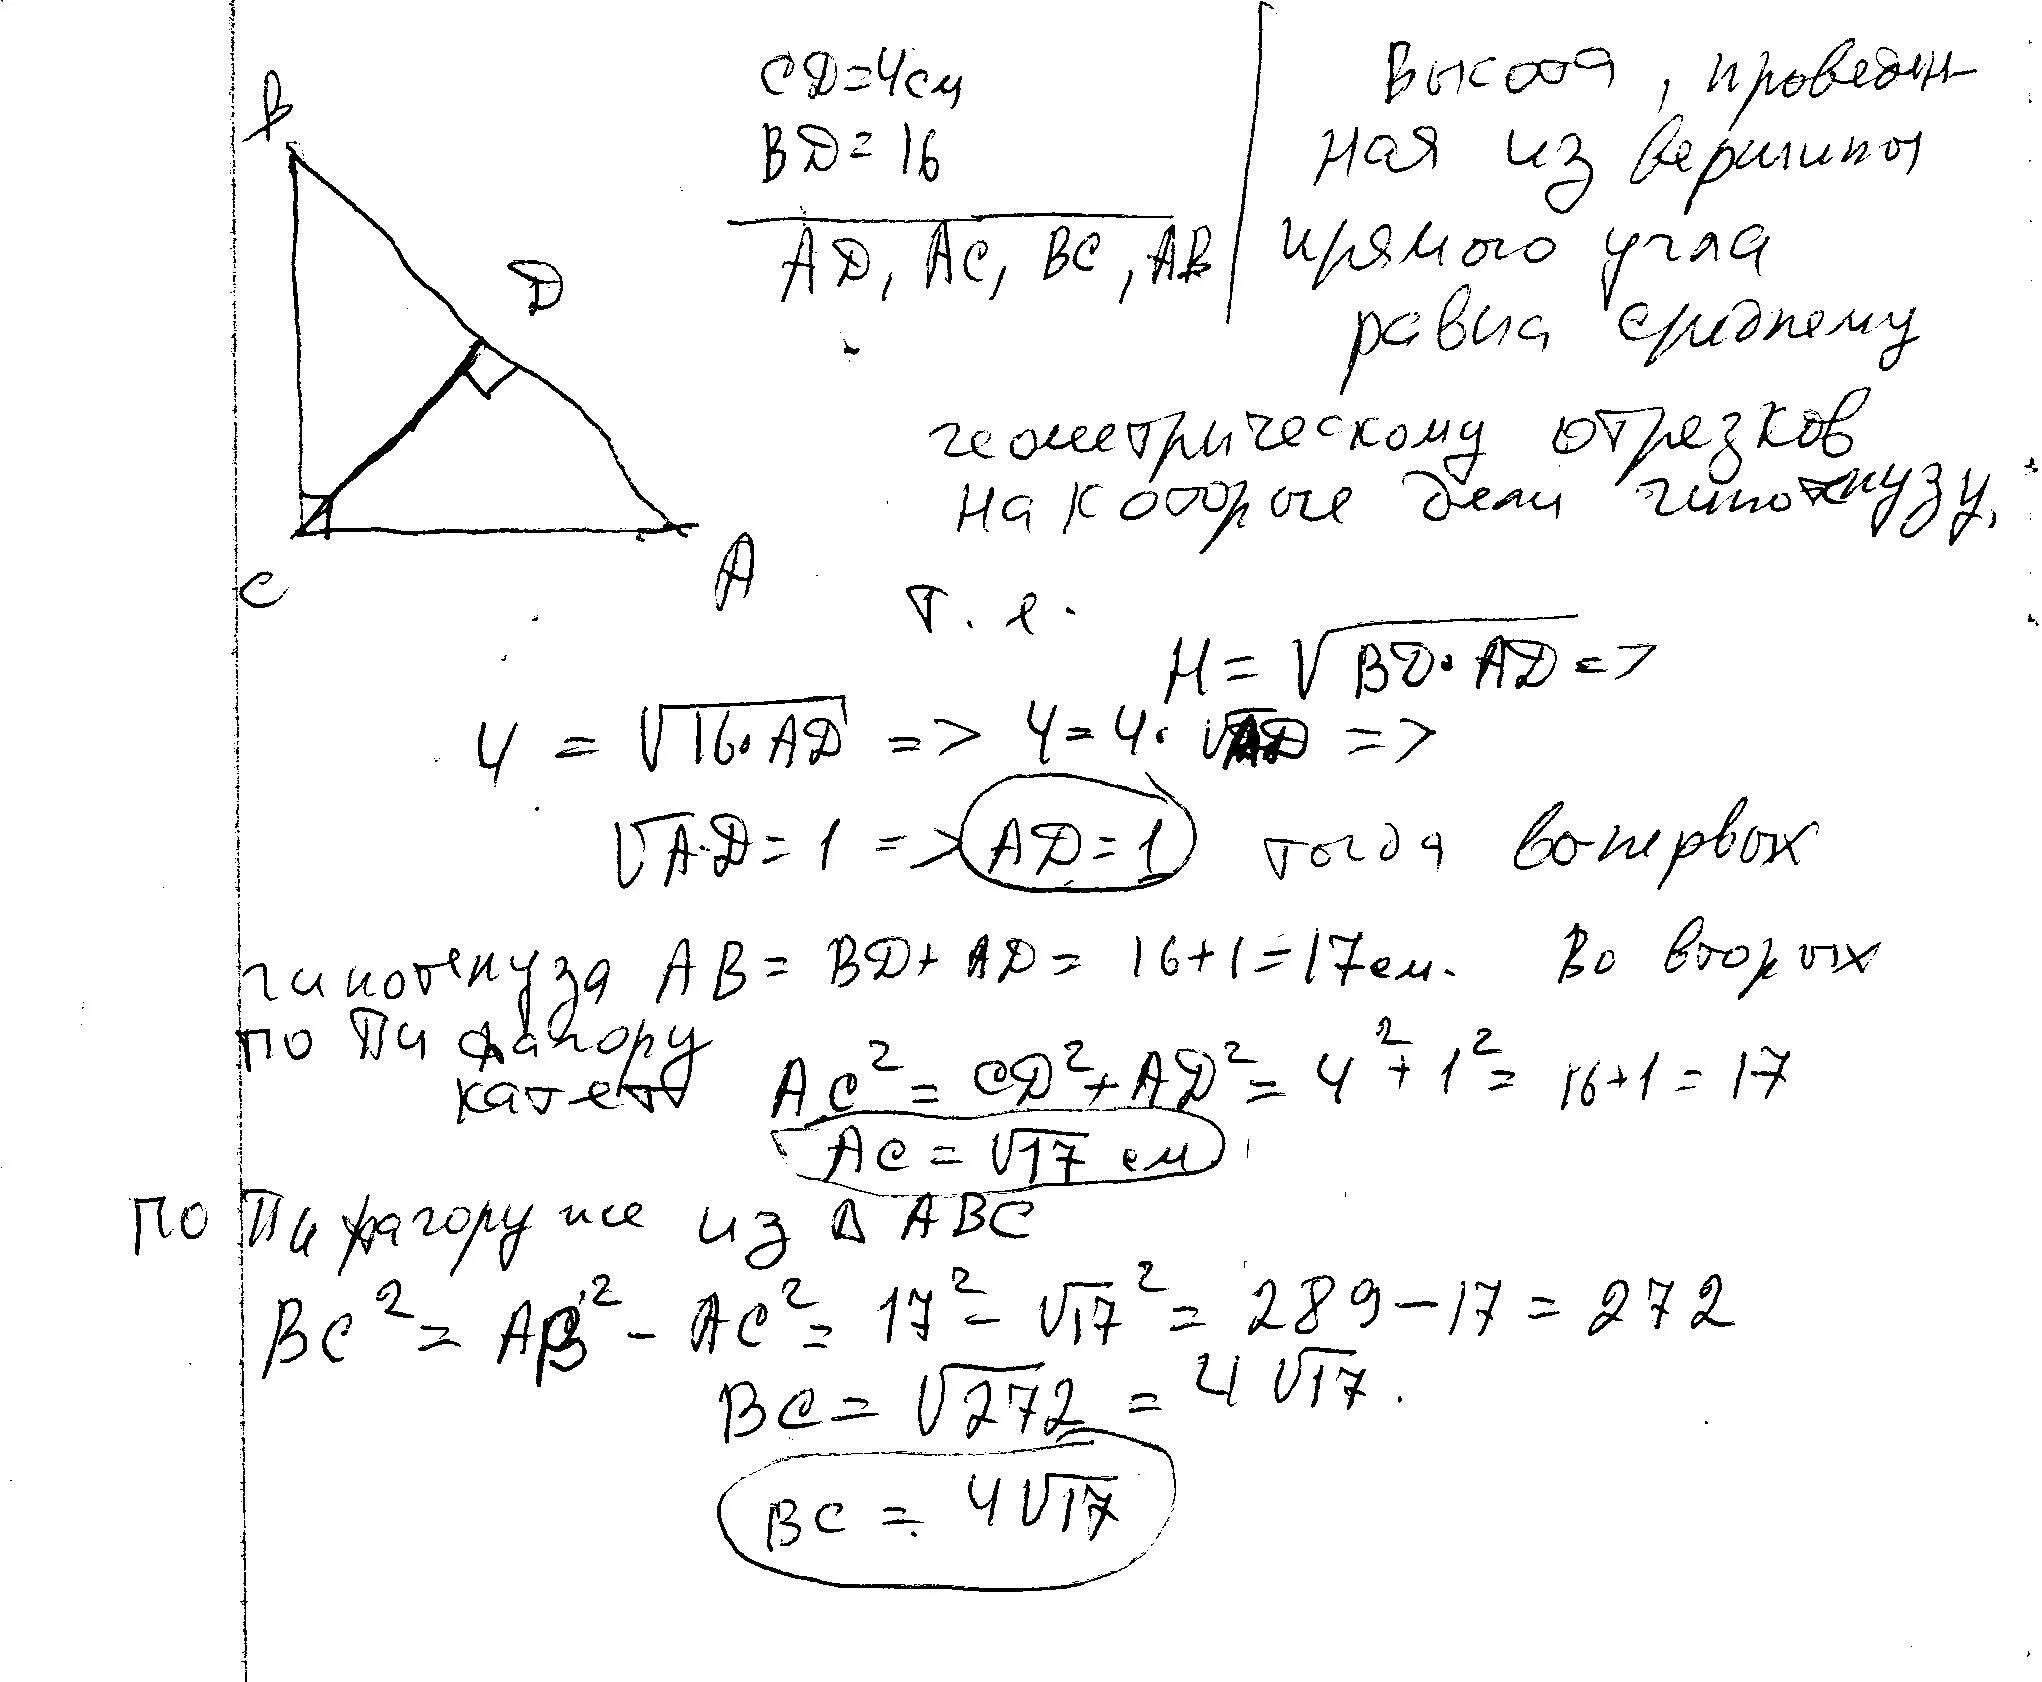 B
D
C
A
CD=4см
BD=16
AD, AC, BC, AB
Высота, проведен-
ная из вершины
прямого угла
равна среднему
геометрическому отрезков
на которые дели гипотенузу,
т. е.
H = √BD·AD =>
4 = √16·AD => 4=4·√AD =>
√AD=1 => AD=1 тогда во первых
гипотенуза AB= BD+AD= 16+1=17см. Во вторых
по Пифагору
катет AC²=CD²+AD²=4²+1²=16+1=17
AC=√17 см
По Пифагору же из Δ ABC
BC²=AB²-AC²=17²-√17²=289-17=272
BC=√272=4√17.
BC=4√17